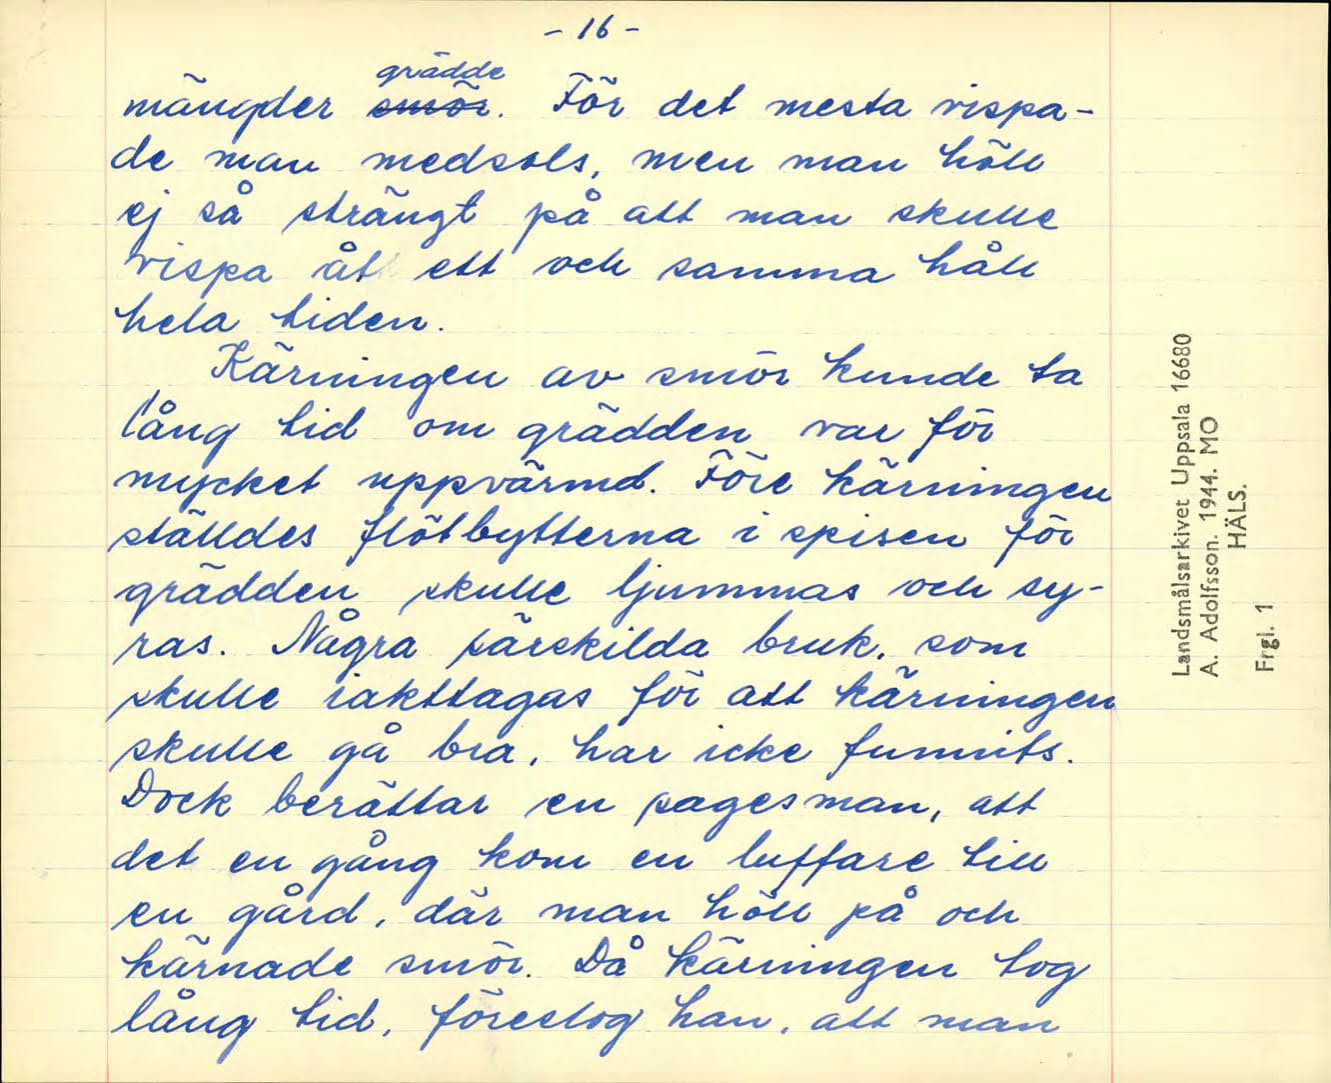 - 16 -
grädde
mängder smör. För det mesta vispa-
de man medsols, men man höll
ej så strängt på att man skulle
vispa åt ett och samma håll
hela tiden.
Kärningen av smör kunde ta
lång tid om grädden var för
mycket uppvärmd. Före kärningen
ställdes flötbytterna i spisen för
grädden skulle ljummas och sy-
ras. Några särskilda bruk, som
skulle iakttagas för att kärningen
skulle gå bra, har icke funnits.
Dock berättar en sagesman, att
det en gång kom en luffare till
en gård, där man höll på och
kärnade smör. Då kärningen tog
lång tid, föreslog han, att man
Landsmålsarkivet Uppsala 16680
A. Adolfsson. 1944. MO
HÄLS.
Frgl. 1